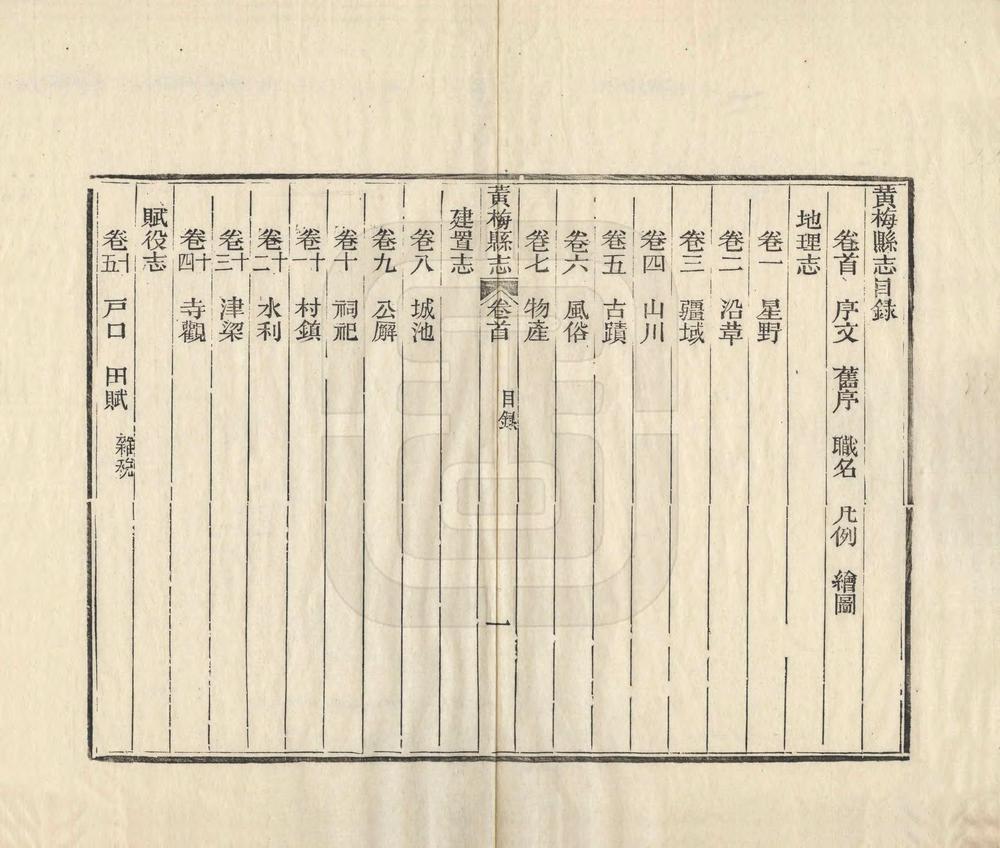 黃梅縣志目錄
卷首 序文 舊序 職名 凡例 繪圖
地理志
卷一 星野
卷二 沿革
卷三 疆域
卷四 山川
卷五 古蹟
卷六 風俗
卷七 物產
黃梅縣志 卷首 目錄 一
建置志
卷八 城池
卷九 公廨
卷十 祠祀
卷十一 村鎮
卷十二 水利
卷十三 津梁
卷十四 寺觀
賦役志
卷十五 戸口 田賦 雜稅